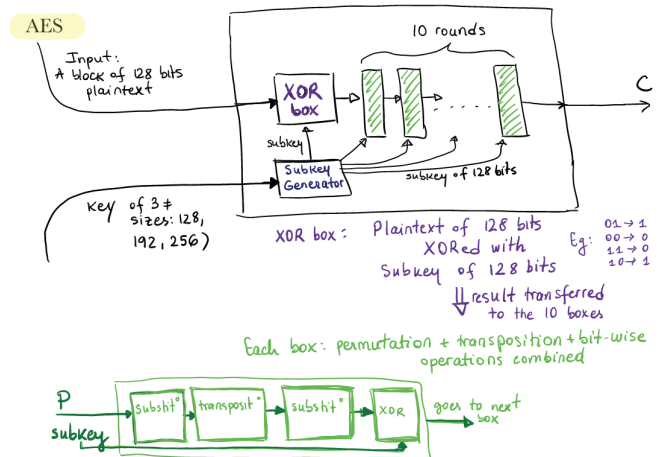 AES
10 rounds
Input:
A block of 128 bits
plaintext
XOR
box
C
subkey
Subkey
Generator
subkey of 128 bits
Key of 3 ≠
sizes: 128,
192, 256)
XOR box: Plaintext of 128 bits
XORed with
Subkey of 128 bits
Eg: 01→1
00→0
11→0
10→1
result transferred
to the 10 boxes
Each box: permutation + transposition + bit-wise
operations combined
P
subkey
substit°
transposit°
substit°
XOR
goes to next
box